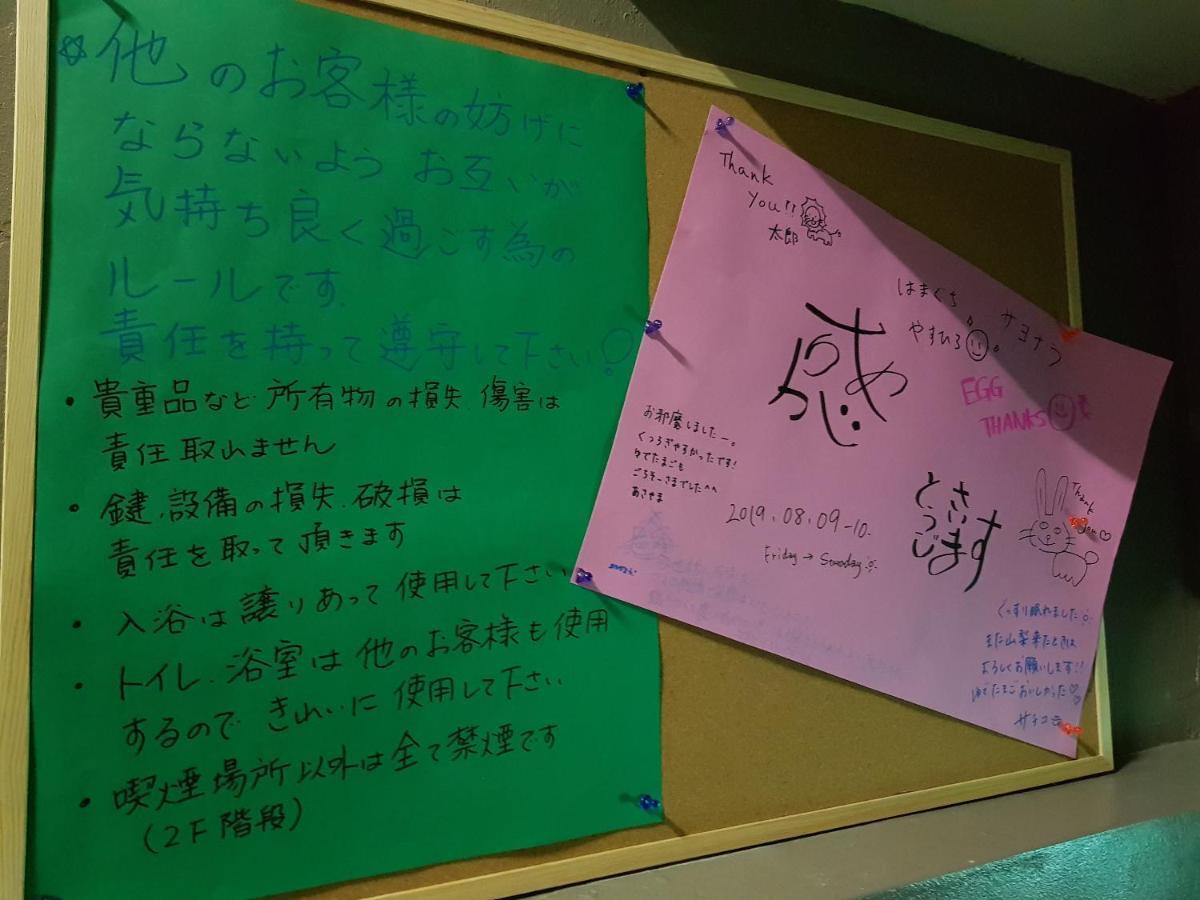 ☆他のお客様の妨げに
ならないよう お互いが
気持ち良く過ごす為の
ルールです。
責任を持って遵守して下さい!
・貴重品など所有物の損失、傷害は
責任取れません
・鍵、設備の損失、破損は
責任を取って頂きます
・入浴は譲りあって使用して下さい
・トイレ、浴室は他のお客様も使用
するので きれいに使用して下さい
・喫煙場所以外は全て禁煙です
(2F階段)
Thank
You!!
太郎
はまぐち
やすひろ
サヨナラ
EGG
THANKS
お邪魔しましたー。
くつろぎやすかったです!
ゆでたまごも
ごちそーさまでした^^
あさやま
2019.08.09-10.
Friday →
とう
ございます
Thank
ぐっすり眠れました
また山梨来たときは
よろしくお願いします!!
ゆでたまごおいしかった♡
サチコ